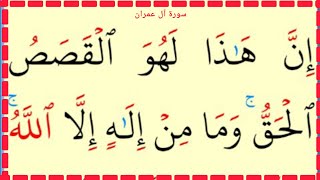 سورة آل عمران
إِنَّ هَٰذَا لَهُوَ ٱلْقَصَصُ
ٱلْحَقُّ ۚ وَمَا مِنْ إِلَٰهٍ إِلَّا ٱللَّهُ ۚ